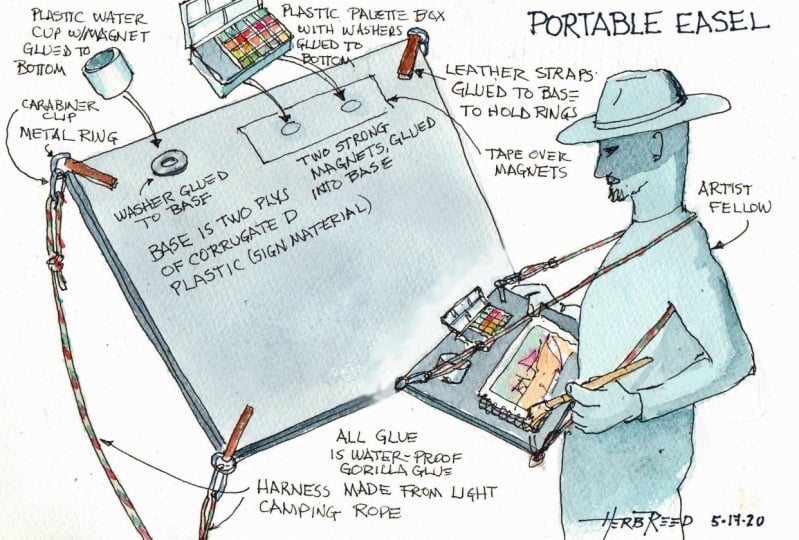 PORTABLE EASEL
PLASTIC WATER
CUP W/MAGNET
GLUED TO
BOTTOM
PLASTIC PALETTE BOX
WITH WASHERS
GLUED TO
BOTTOM
LEATHER STRAPS
GLUED TO BASE
TO HOLD RINGS
CARABINER
CLIP
METAL RING
TAPE OVER
MAGNETS
WASHER GLUED
TO BASE
TWO STRONG
MAGNETS, GLUED
INTO BASE
BASE IS TWO PLYS
OF CORRUGATED
PLASTIC (SIGN MATERIAL)
ARTIST
FELLOW
ALL GLUE
IS WATER-PROOF
GORILLA GLUE
HARNESS MADE FROM LIGHT
CAMPING ROPE
HERB REED 5-17-20